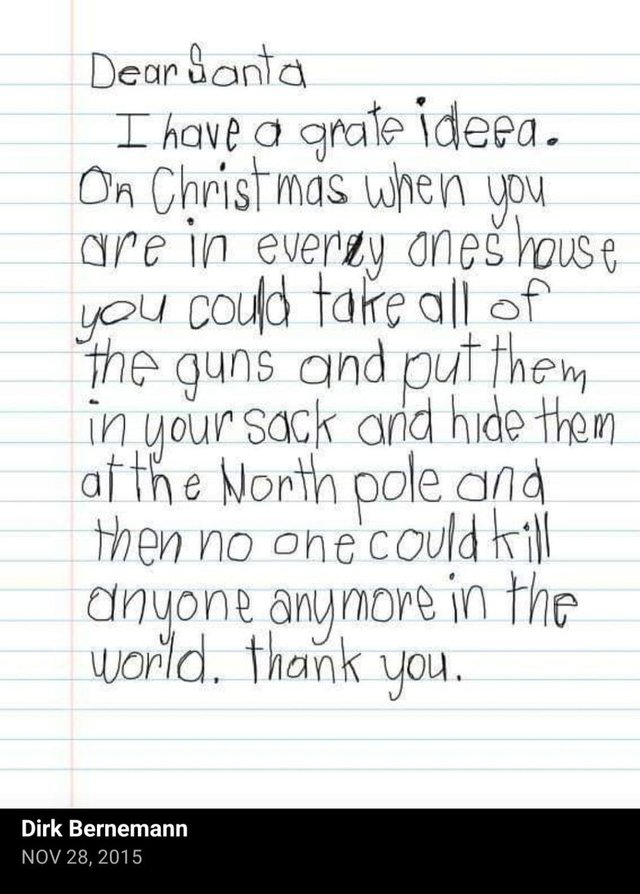 Dear Santa
I have a grate ideea.
On Christmas when you
are in everzy ones house
you could take all of
the guns and put them
in your sack and hide them
at the North pole and
then no one could kill
anyone anymore in the
world. thank you.
Dirk Bernemann
NOV 28, 2015